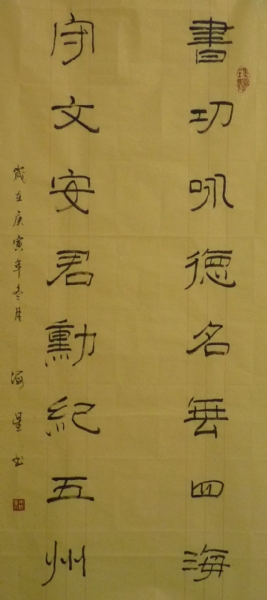 書功咏德名垂四海
守文安君勳紀五州
歲在庚寅年冬月 海星书